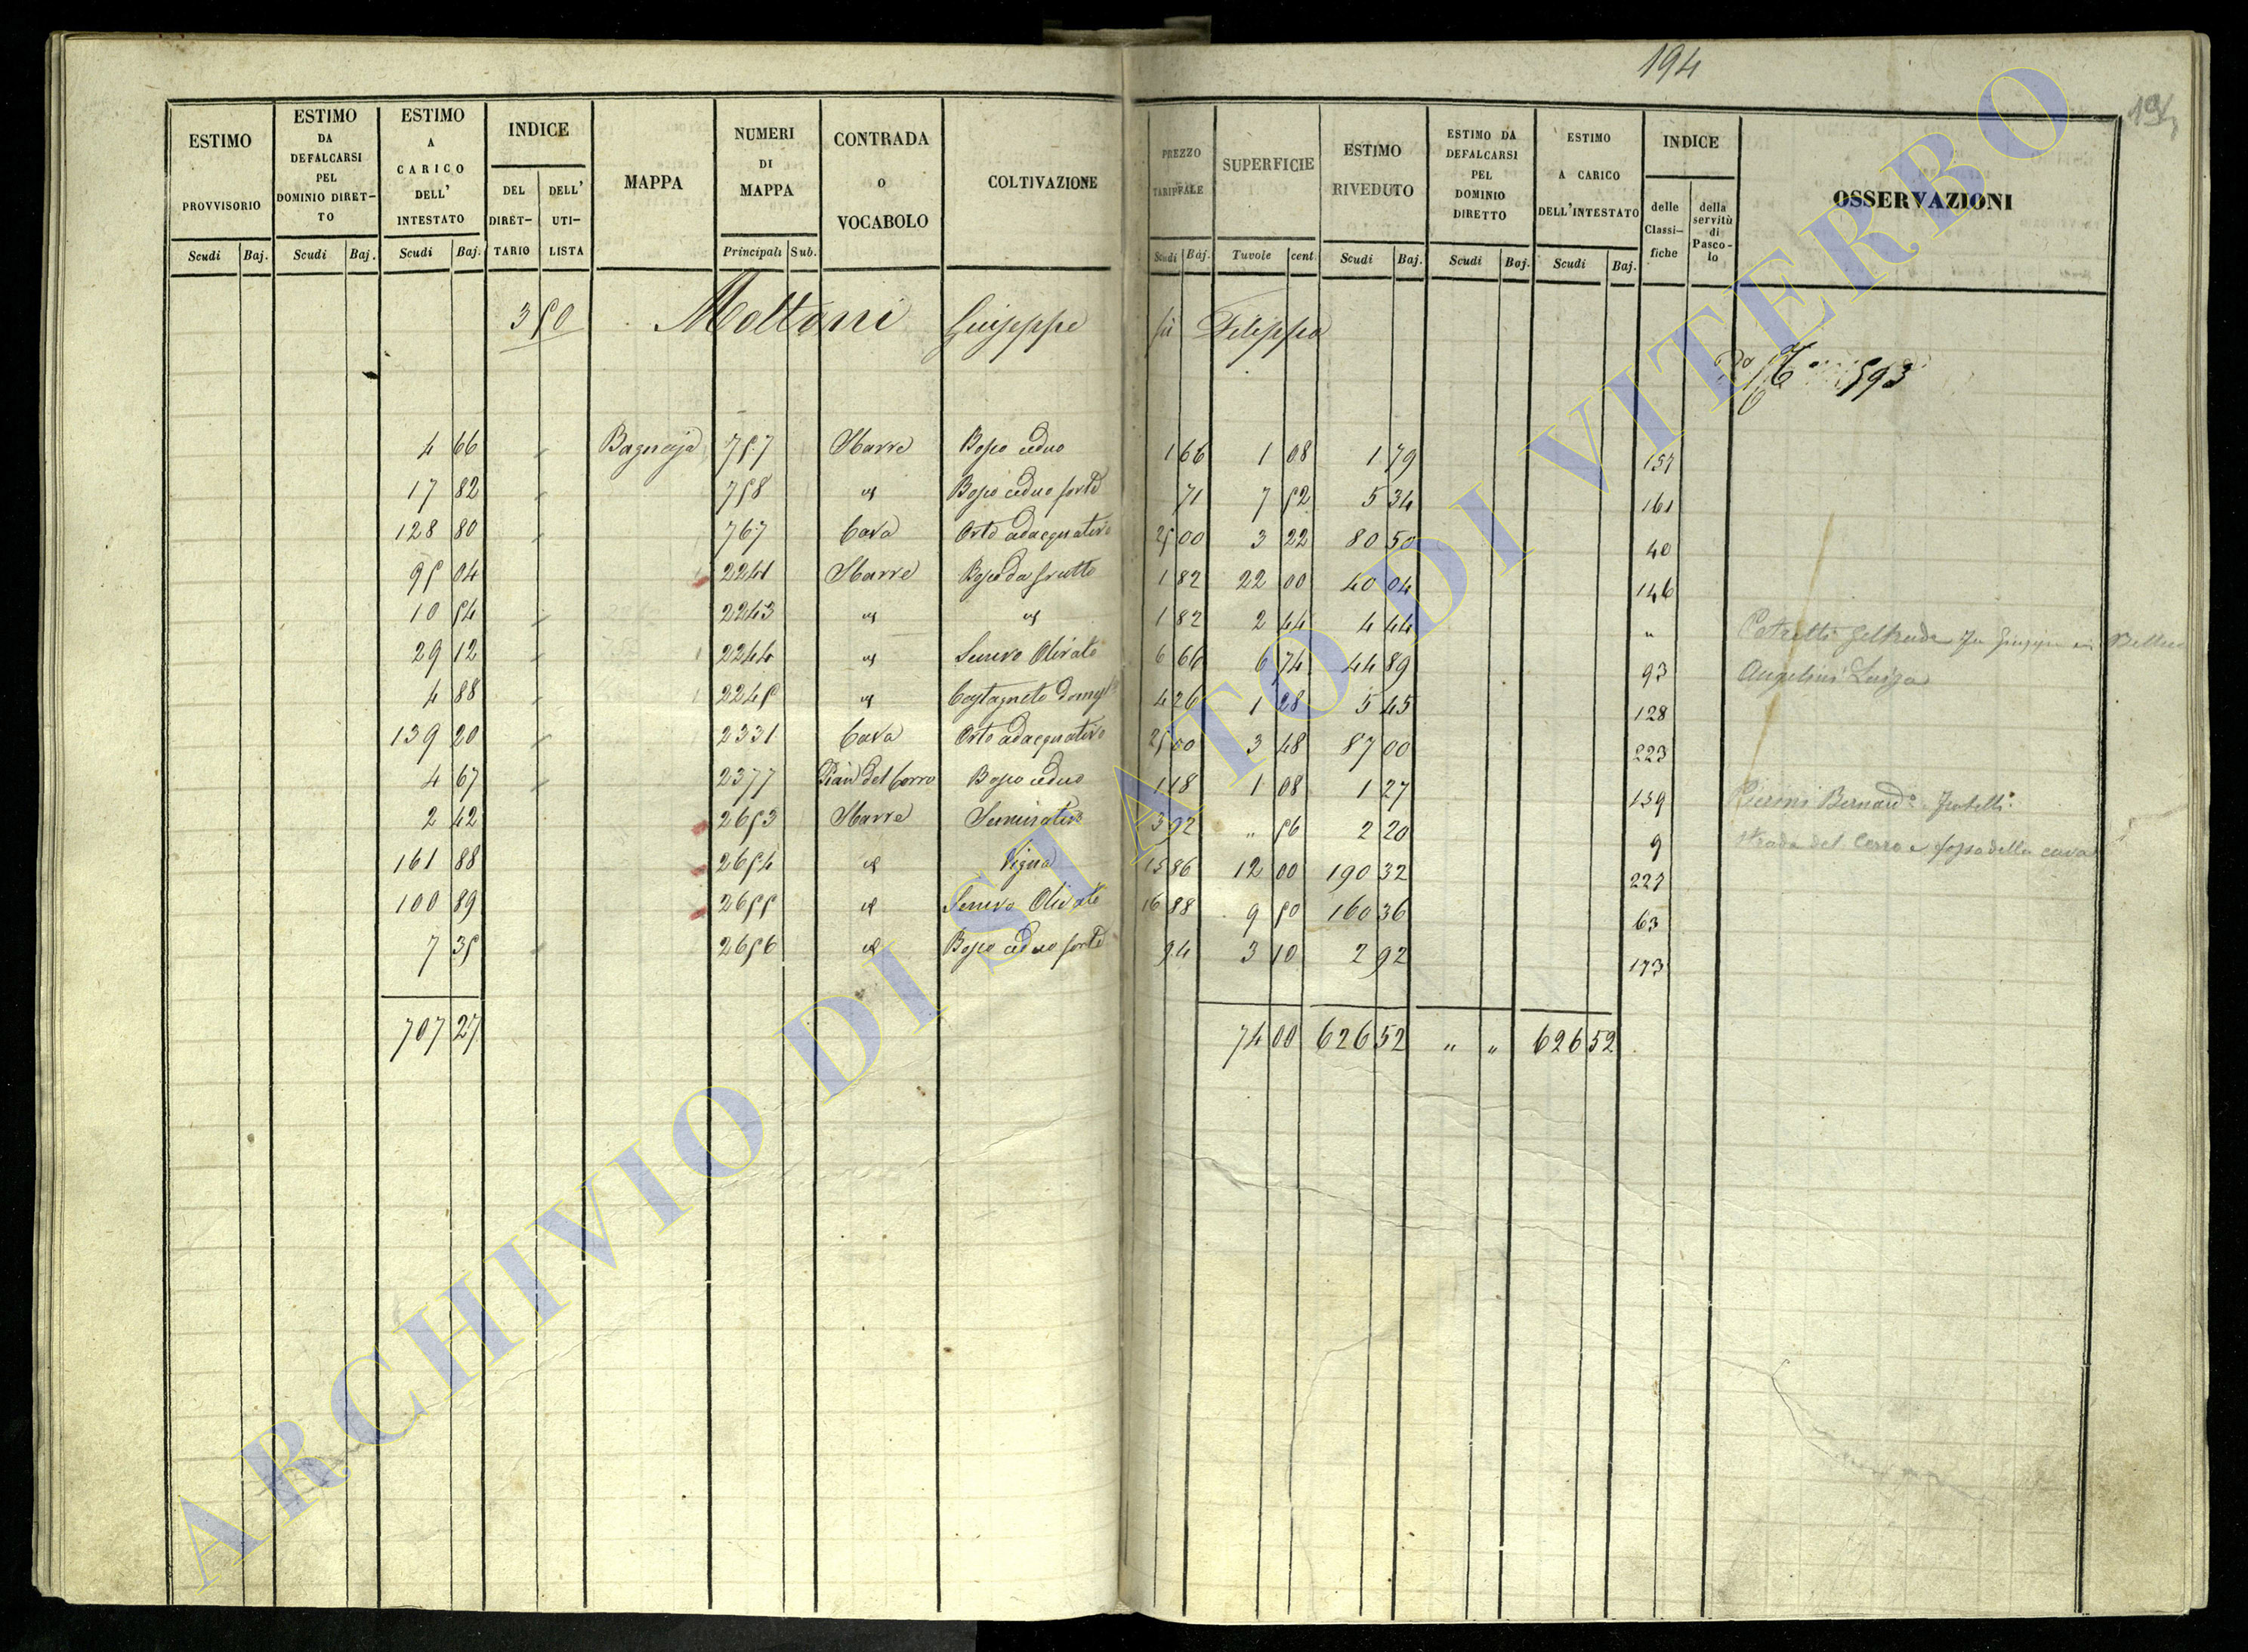 194
194
ESTIMO PROVVISORIO
ESTIMO DA DEFALCARSI PEL DOMINIO DIRET-TO
ESTIMO A CARICO DELL' INTESTATO
INDICE
DEL DIRET-TARIO
DELL' UTI-LISTA
MAPPA
NUMERI DI MAPPA
CONTRADA o VOCABOLO
COLTIVAZIONE
PREZZO TARIFFALE
SUPERFICIE
ESTIMO RIVEDUTO
ESTIMO DA DEFALCARSI PEL DOMINIO DIRETTO
ESTIMO A CARICO DELL'INTESTATO
INDICE
delle Classi-fiche
della servitù di Pasco-lo
OSSERVAZIONI
Scudi Baj. Scudi Baj. Scudi Baj. Principali Sub. Scudi Baj. Tavole cent. Scudi Baj. Scudi Baj. Scudi Baj.
350 Moltoni Giuseppe fù Filippo
593
4 66 " Bagnaja 757 Sbarre Bosco ceduo 1 66 1 08 1 79 157
17 82 " 758 id Bosco ceduo forte 71 7 52 5 34 161
128 80 " 767 Cava Orto adacquativo 25 00 3 22 80 50 40
95 04 2241 Sbarre Bosco da frutto 1 82 22 00 40 04 146
10 54 " 2243 id id 1 82 2 44 4 44 "
29 12 " 2244 id Semivo Olivato 6 66 6 74 44 89 93 Angelini Luigi
4 88 " 2245 id Castagneto domest 4 26 1 28 5 45 128
139 20 " 2331 Cava Orto adacquativo 25 00 3 48 87 00 223
4 67 " 2377 Pian del Cerro Bosco ceduo 1 18 1 08 1 27 159 Bernard.o Fratelli
2 42 2653 Sbarre Seminativo 3 92 " 56 2 20 9 strada del Cerro e fosso della cava
161 88 2654 id Vigna 15 86 12 00 190 32 227
100 89 2655 id Semivo Olivato 16 88 9 50 160 36 63
7 35 " 2656 id Bosco ceduo forte 94 3 10 2 92 173
707 27 74 00 626 52 " " 626 52
ARCHIVIO DI STATO DI VITERBO